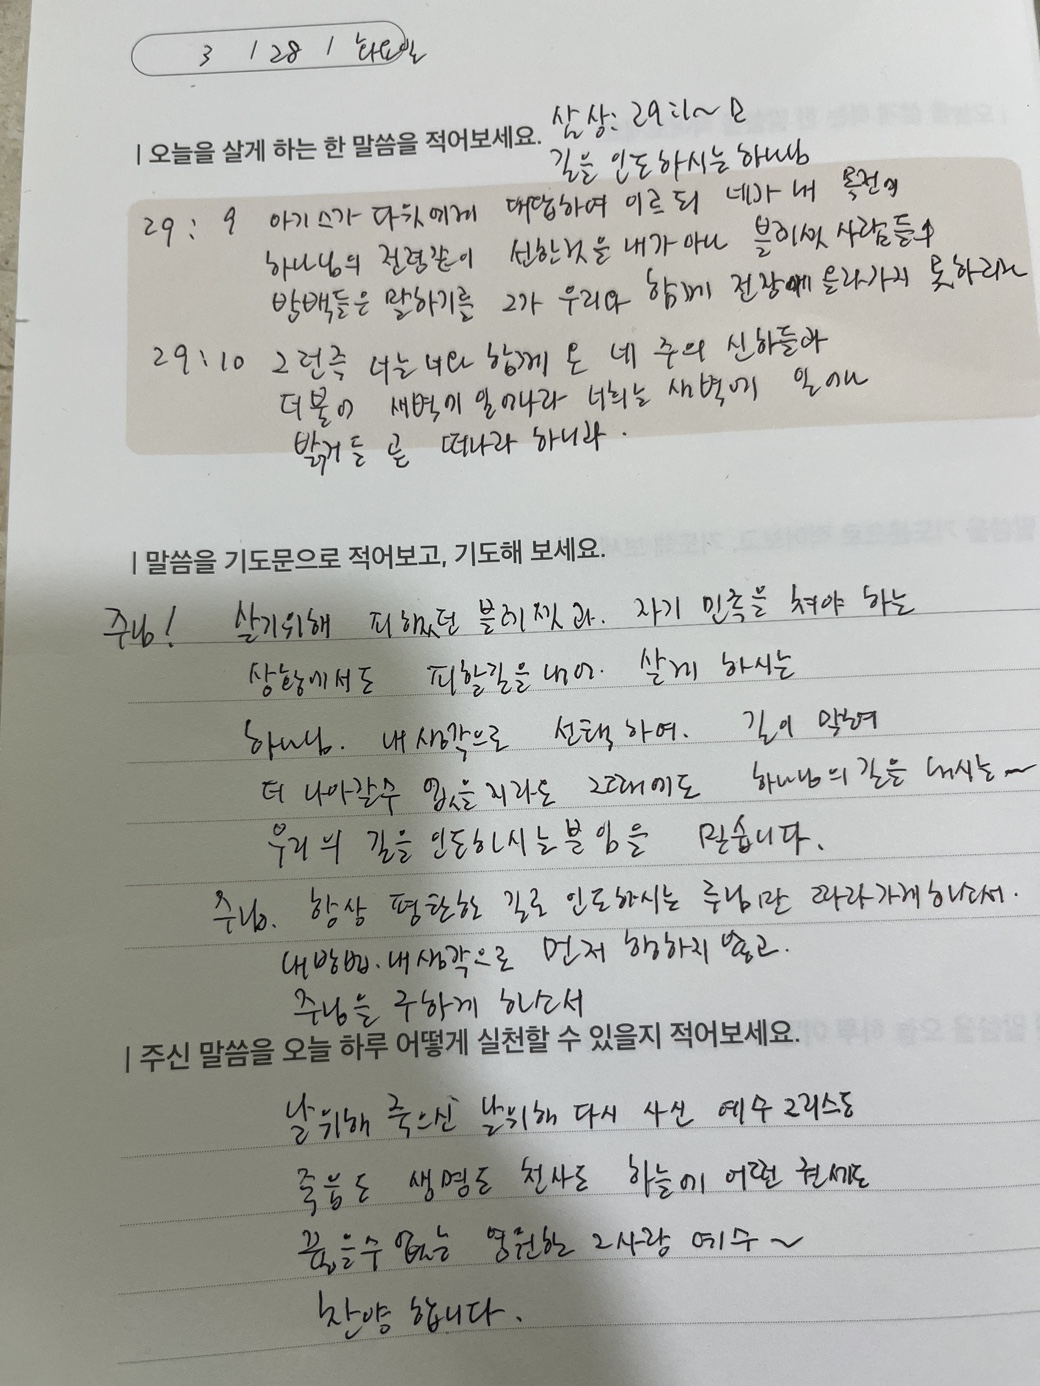 3 / 28 / 화요일
삼상: 29:1~
| 오늘을 살게 하는 한 말씀을 적어보세요.
길을 인도하시는 하나님
29 : 9 아기스가 다윗에게 대답하여 이르되 네가 내 목전에
하나님의 전령같이 선한것을 내가 아나 블레셋 사람들의
방백들은 말하기를 그가 우리와 함께 전장에 올라가지 못하리라
29:10 그런즉 너는 너와 함께 온 네 주의 신하들과
더불어 새벽에 일어나라 너희는 새벽에 일어나
밝거든 곧 떠나라 하니라.
| 말씀을 기도문으로 적어보고, 기도해 보세요.
주님! 살기위해 피했던 블레셋과. 자기 민족을 쳐야 하는
상황에서도 피할길을 내어. 살게 하시는
하나님. 내 생각으로 선택하여. 길이 막혀
더 나아갈수 없을지라도 그때에도 하나님의 길을 내시는~
우리의 길을 인도하시는분 임을 믿습니다.
주님. 항상 평탄한 길로 인도하시는 주님만 따라가게하소서.
내방법.내생각으로 먼저 행하지 않고.
주님을 구하게 하소서
| 주신 말씀을 오늘 하루 어떻게 실천할 수 있을지 적어보세요.
날위해 죽으신 날위해 다시 사신 예수 그리스도
죽음도 생명도 천사도 하늘에 어떤 권세도
끊을수 없는 영원한 그사랑 예수~
찬양 합니다.